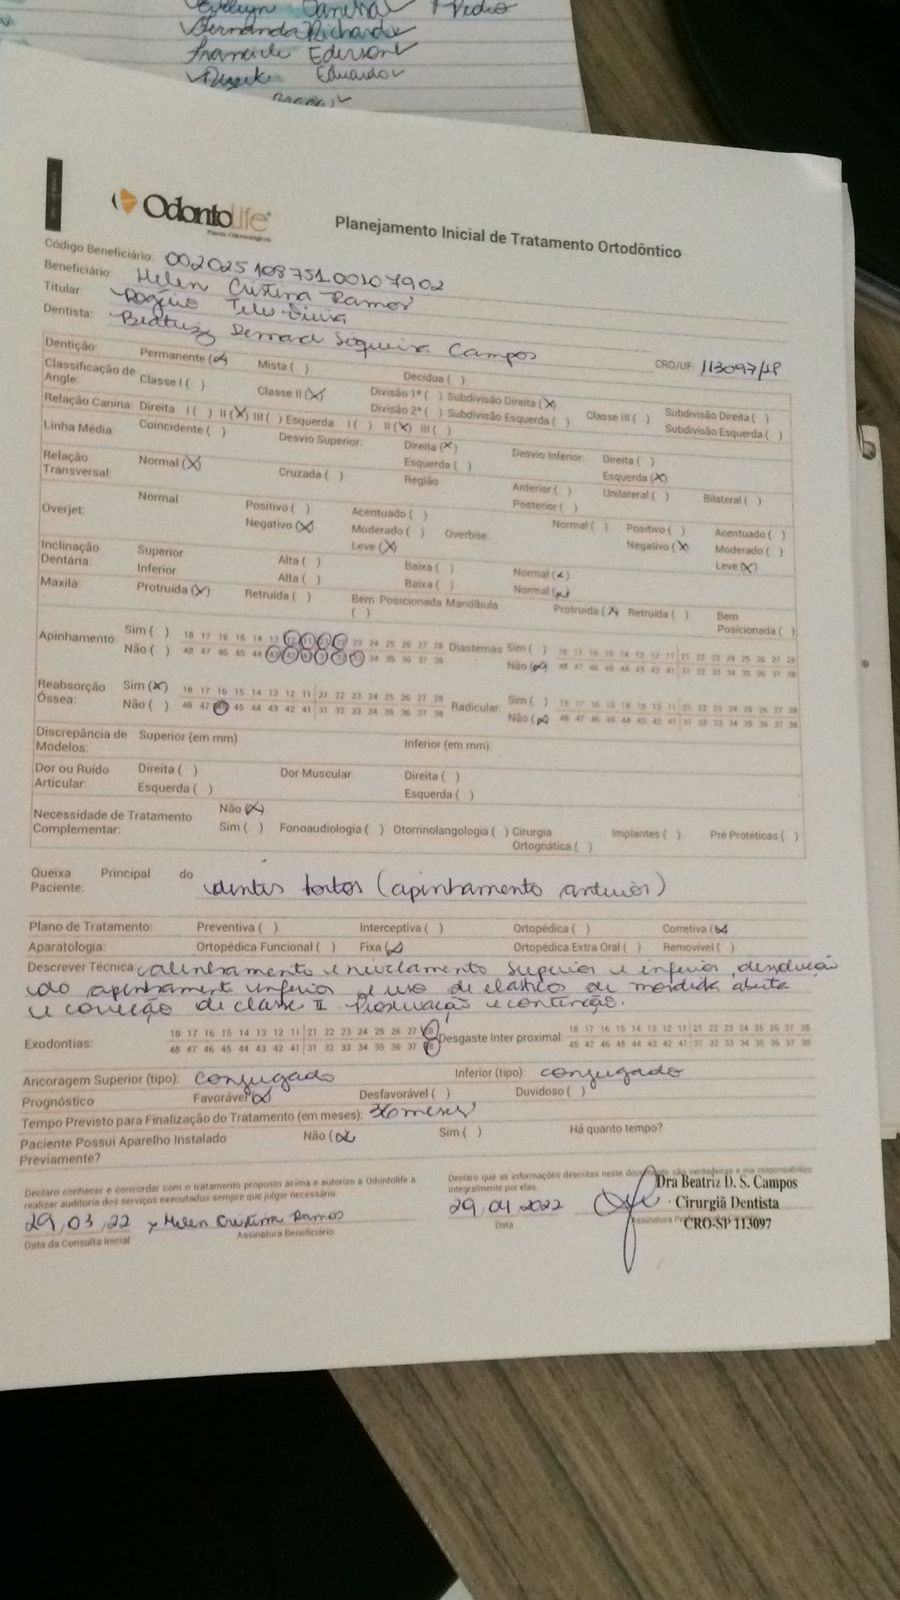 Pedro
Fernanda Richard
Franciele Ederson
Eduardo
OdontoLife
Planos Odontológicos
Planejamento Inicial de Tratamento Ortodôntico
Código Beneficiário: 00202510875100107902
Beneficiário: Helen Cristina Ramos
Titular: Rogério
Dentista: Beatriz Siqueira Campos CRO/UF 113097/SP
Dentição: Permanente (X) Mista ( ) Decídua ( )
Classificação de Angle: Classe I ( ) Classe II (X) Divisão 1ª ( ) Subdivisão Direita (X) Classe III ( ) Subdivisão Direita ( )
Divisão 2ª ( ) Subdivisão Esquerda ( ) Subdivisão Esquerda ( )
Relação Canina: Direita I ( ) II (X) III ( ) Esquerda I ( ) II (X) III ( )
Linha Média: Coincidente ( ) Desvio Superior: Direita (X) Desvio Inferior: Direita ( )
Esquerda ( ) Esquerda (X)
Relação Transversal: Normal (X) Cruzada ( ) Região Anterior ( ) Unilateral ( ) Bilateral ( )
Posterior ( )
Overjet: Normal Positivo ( ) Acentuado ( ) Overbite: Normal ( ) Positivo ( ) Acentuado ( )
Negativo (X) Moderado ( ) Negativo (X) Moderado ( )
Leve (X) Leve (X)
Inclinação Dentária: Superior Alta ( ) Baixa ( ) Normal (X)
Inferior Alta ( ) Baixa ( ) Normal (X)
Maxila: Protruída (X) Retruída ( ) Bem Posicionada ( ) Mandíbula Protruída (X) Retruída ( ) Bem Posicionada ( )
Apinhamento: Sim ( ) 18 17 16 15 14 13 12 11 21 22 23 24 25 26 27 28 Diastemas Sim ( ) 18 17 16 15 14 13 12 11 21 22 23 24 25 26 27 28
Não ( ) 48 47 46 45 44 43 42 41 31 32 33 34 35 36 37 38 Não (X) 48 47 46 45 44 43 42 41 31 32 33 34 35 36 37 38
Reabsorção Óssea: Sim (X) 18 17 16 15 14 13 12 11 21 22 23 24 25 26 27 28 Radicular: Sim ( ) 18 17 16 15 14 13 12 11 21 22 23 24 25 26 27 28
Não ( ) 48 47 46 45 44 43 42 41 31 32 33 34 35 36 37 38 Não (X) 48 47 46 45 44 43 42 41 31 32 33 34 35 36 37 38
Discrepância de Modelos: Superior (em mm) Inferior (em mm)
Dor ou Ruído Articular: Direita ( ) Dor Muscular Direita ( )
Esquerda ( ) Esquerda ( )
Necessidade de Tratamento Complementar: Não (X)
Sim ( ) Fonoaudiologia ( ) Otorrinolangologia ( ) Cirurgia Ortognática ( ) Implantes ( ) Pré Protéticas ( )
Queixa Principal do Paciente: dentes tortos (apinhamento anterior)
Plano de Tratamento: Preventiva ( ) Interceptiva ( ) Ortopédica ( ) Corretiva (X)
Aparatologia: Ortopédica Funcional ( ) Fixa (X) Ortopédica Extra Oral ( ) Removível ( )
Descrever Técnica: alinhamento e nivelamento superior e inferior, dissolução
do apinhamento inferior e uso de elástico de mordida aberta
e correção de classe II. Proservação e contenção.
Exodontias: 18 17 16 15 14 13 12 11 21 22 23 24 25 26 27 28 Desgaste Inter proximal: 18 17 16 15 14 13 12 11 21 22 23 24 25 26 27 28
48 47 46 45 44 43 42 41 31 32 33 34 35 36 37 38 48 47 46 45 44 43 42 41 31 32 33 34 35 36 37 38
Ancoragem Superior (tipo): conjugado Inferior (tipo): conjugado
Prognóstico Favorável (X) Desfavorável ( ) Duvidoso ( )
Tempo Previsto para Finalização do Tratamento (em meses): 36 meses
Paciente Possui Aparelho Instalado Previamente? Não (X) Sim ( ) Há quanto tempo?
Declaro conhecer e concordar com o tratamento proposto acima e autorizo a Odontolife a
realizar auditoria dos serviços executados sempre que julgar necessário.
Declaro que as informações descritas neste documento são verdadeiras e me responsabilizo
integralmente por elas.
29,03,22 x Helen Cristina Ramos
Data da Consulta Inicial Assinatura Beneficiário
29,04,2022
Data
Dra Beatriz D. S. Campos
Cirurgiã Dentista
CRO-SP 113097